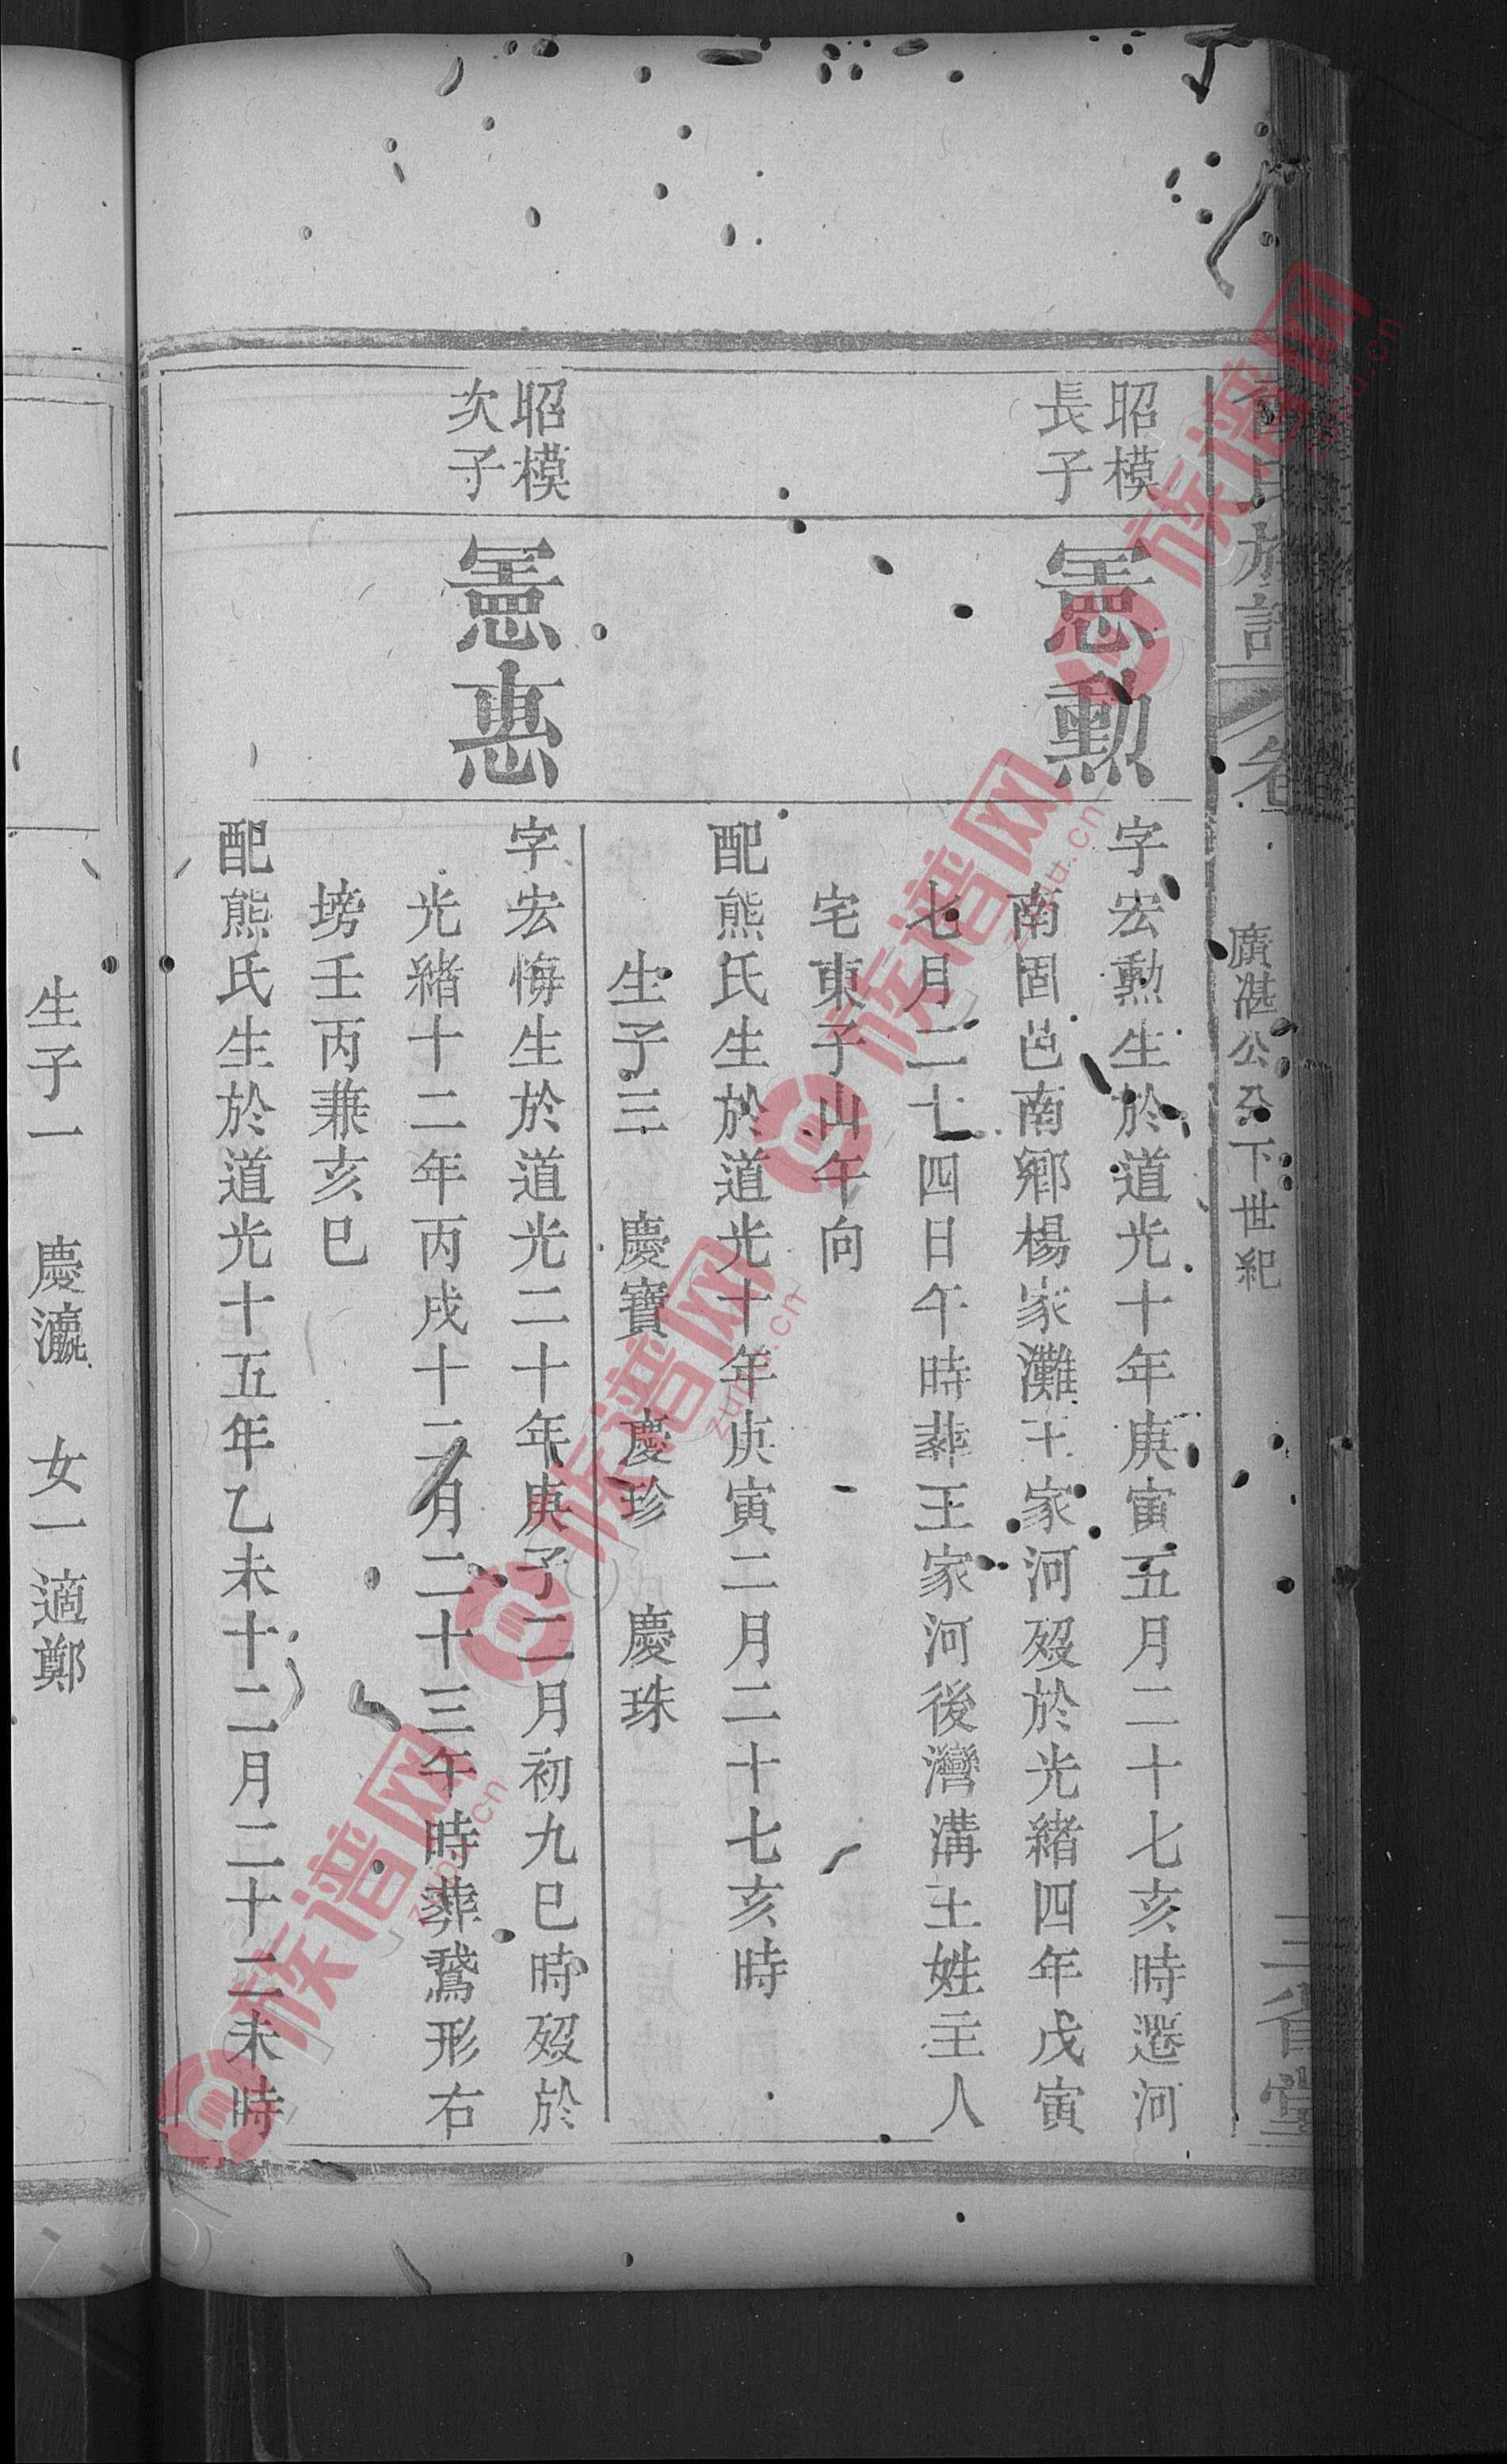 族譜
卷
廣湛公分下世紀
三省堂
昭模
長子
憲勲
字宏勲生於道光十年庚寅五月二十七亥時遷河
南固邑南鄉楊家灘王家河歿於光緒四年戊寅
七月二十四日午時葬王家河後灣溝王姓主人
宅東子山午向
配熊氏生於道光十年庚寅二月二十七亥時
生子三 慶寶 慶珍 慶珠
昭模
次子
憲惠
字宏悔生於道光二十年庚子二月初九巳時歿於
光緒十二年丙戌十二月二十三午時葬鵞形右
塝壬丙兼亥巳
配熊氏生於道光十五年乙未十二月二十二未時
生子一 慶瀛 女一適鄭
族谱网
zupu.cn
族谱网
zupu.cn
族谱网
zupu.cn
族谱网
zupu.cn